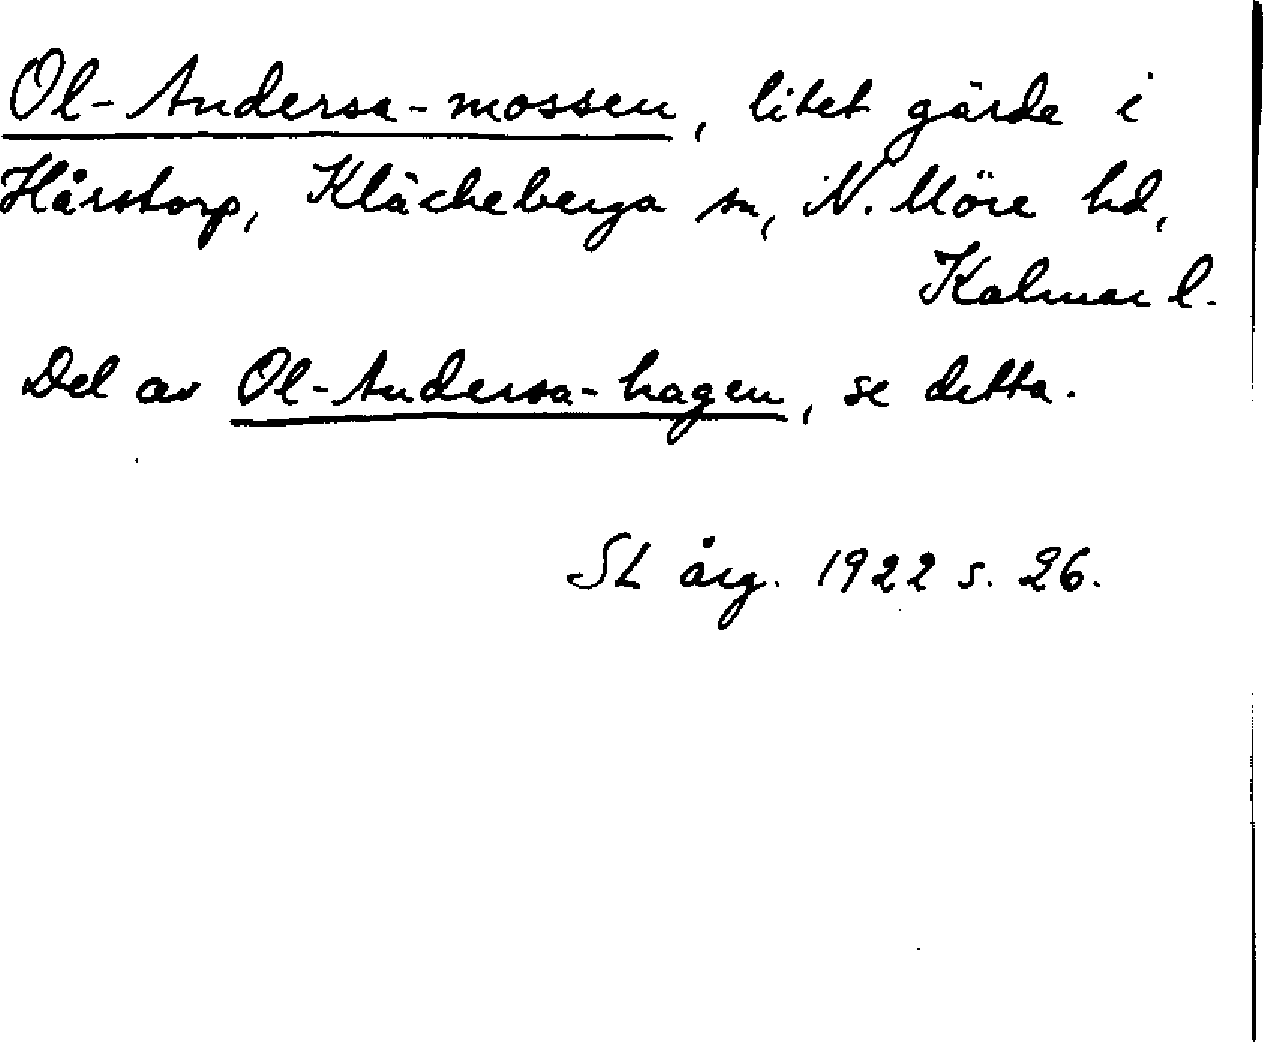 Ol-Andersa-mossen, litet gärde i
Hårstorp, Kläckeberga sn, N. Möre hd,
Kalmar l.
Del av Ol-Andersa-hagen, se detta.
SL årg. 1922 s. 26.